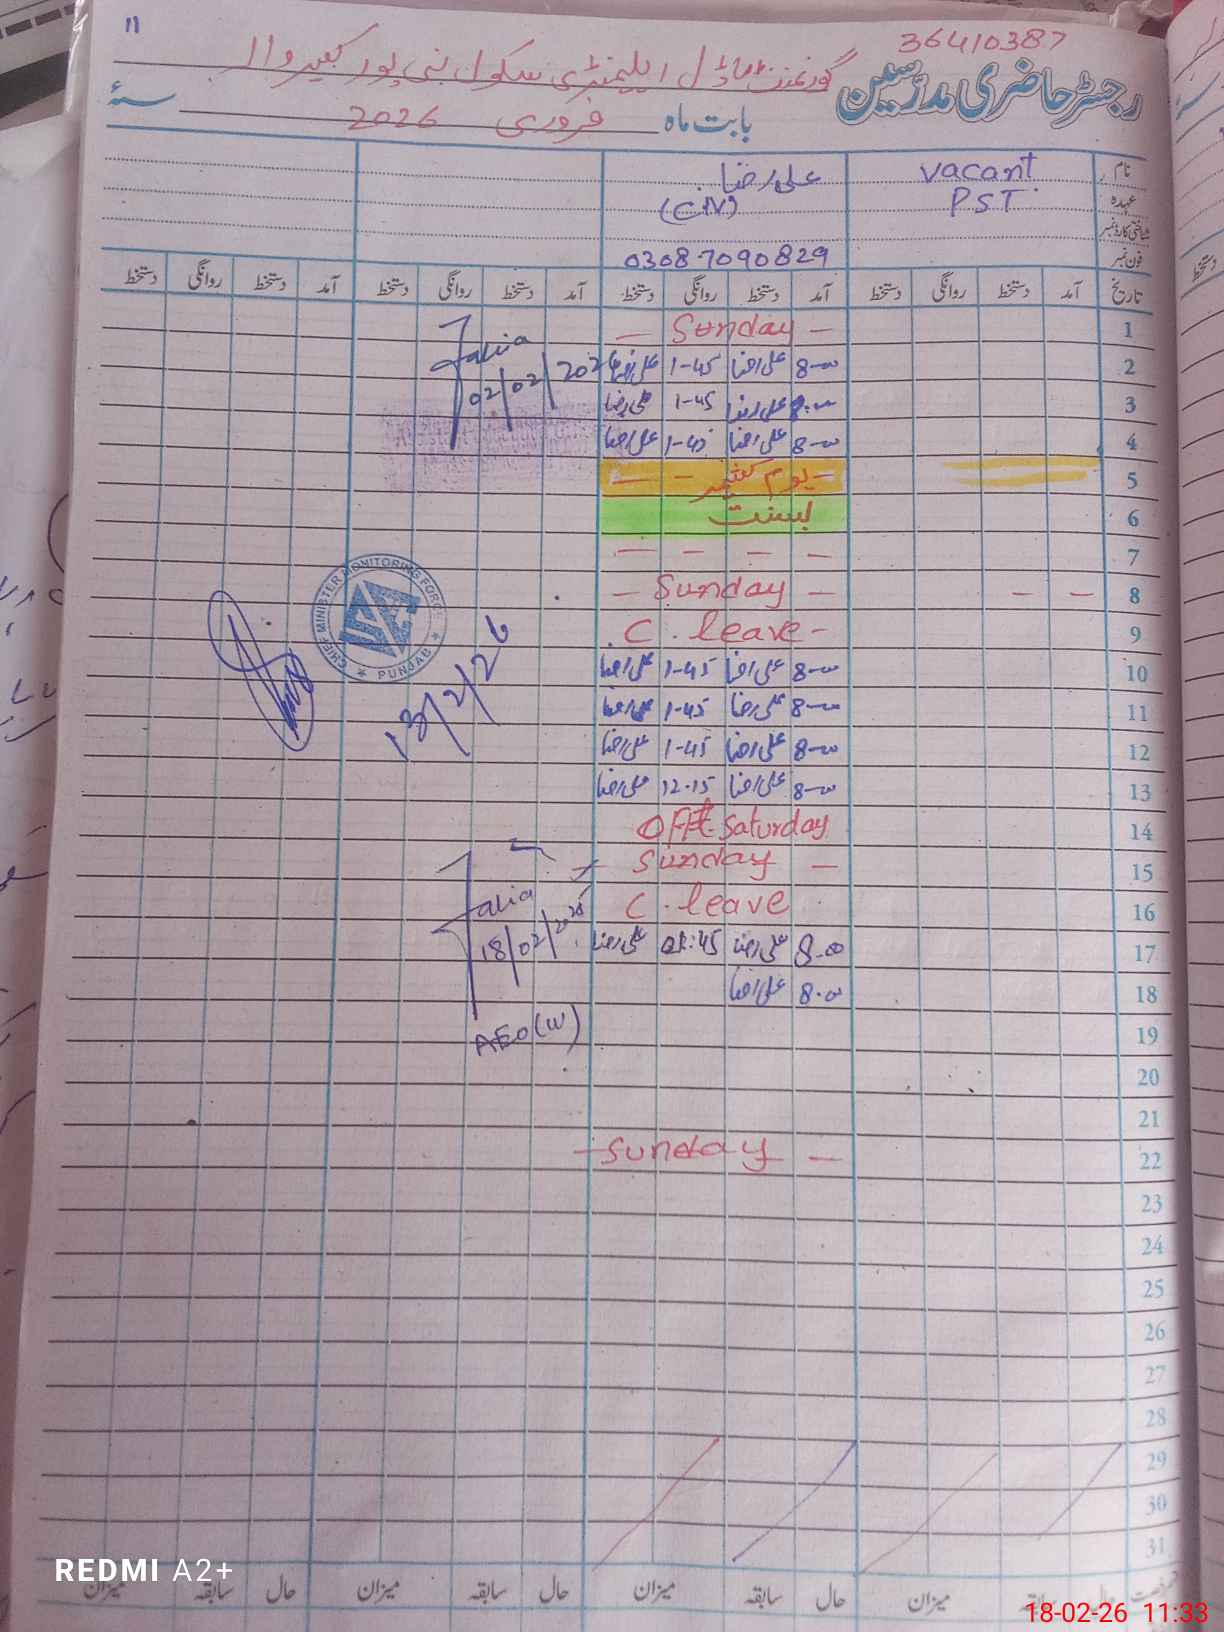 11
36410387
رجسٹر حاضری مدرسین
گورنمنٹ ماڈل ایلیمنٹری سکول نبی پور کبیروالا
بابت ماہ فروری 2026 سنہٗ
نام vacant علی رضا
عہدہ PST (C.IV)
شناختی کارڈ نمبر
فون نمبر 03087090829
تاریخ آمد دستخط روانگی دستخط آمد دستخط روانگی دستخط آمد دستخط روانگی دستخط آمد دستخط روانگی دستخط
1 — Sunday —
2 8-00 علی رضا 1-45 علی رضا
3 8-00 علی رضا 1-45 علی رضا
4 8-00 علی رضا 1-45 علی رضا
02/02/2026
5 — یوم کشمیر — —
6 بسنت
7 — — — —
8 — — — Sunday —
9 C. leave —
10 8-00 علی رضا 1-45 علی رضا
11 8-00 علی رضا 1-45 علی رضا
12 8-00 علی رضا 1-45 علی رضا
13 8-00 علی رضا 12-15 علی رضا
CHIEF MINISTER MONITORING FORCE
★ PUNJAB ★
13/2/26
14 Off Saturday
15 — Sunday —
16 C. leave
17 8.00 علی رضا 01:45 علی رضا
18 8.00 علی رضا
18/02/2026
AEO (W)
19
20
21
22 — Sunday —
23
24
25
26
27
28
29
30
31
حال میزان حال سابقہ میزان حال سابقہ میزان حال سابقہ میزان
REDMI A2+
18-02-26 11:33